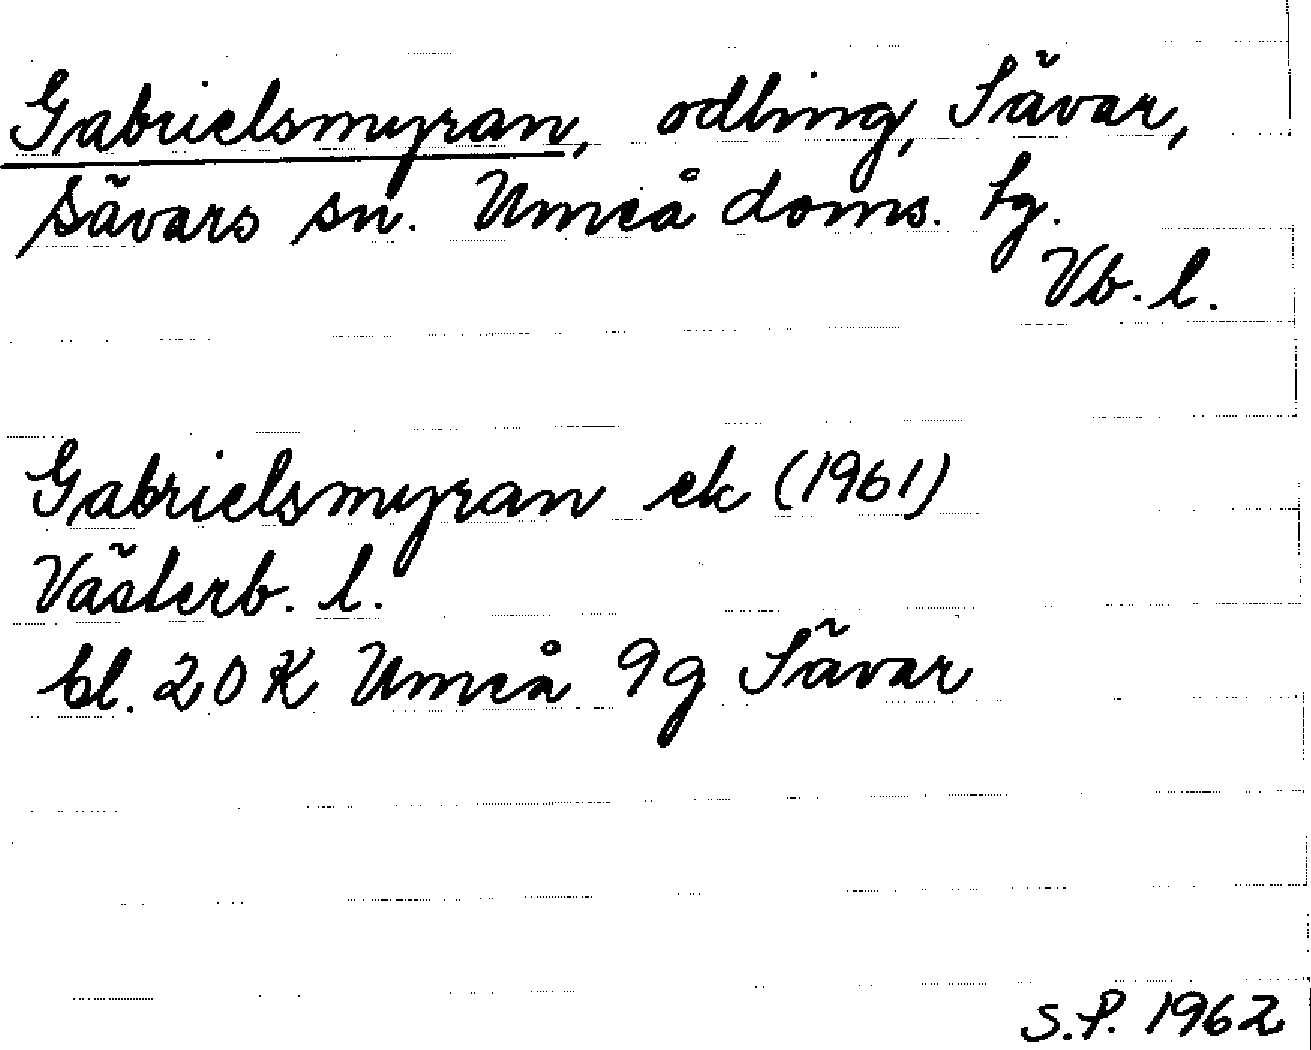 Gabrielsmyran, odling, Sävar,
Sävars sn. Umeå doms. tg.
Vb. l.
Gabrielsmyran ek (1961)
Västerb. l.
bl. 20 K Umeå 9g Sävar
S.P. 1962